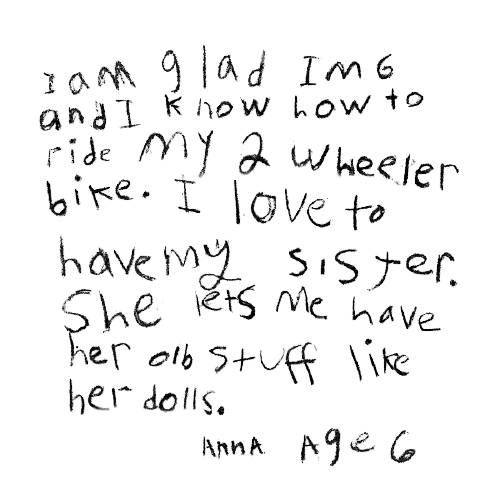 I am glad Im 6
and I know how to
ride my 2 wheeler
bike. I love to
have my sister.
She lets me have
her olb stuff like
her dolls.
AnnA Age 6